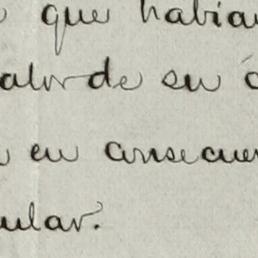 que habian
alor de su
en consecuen
ular.